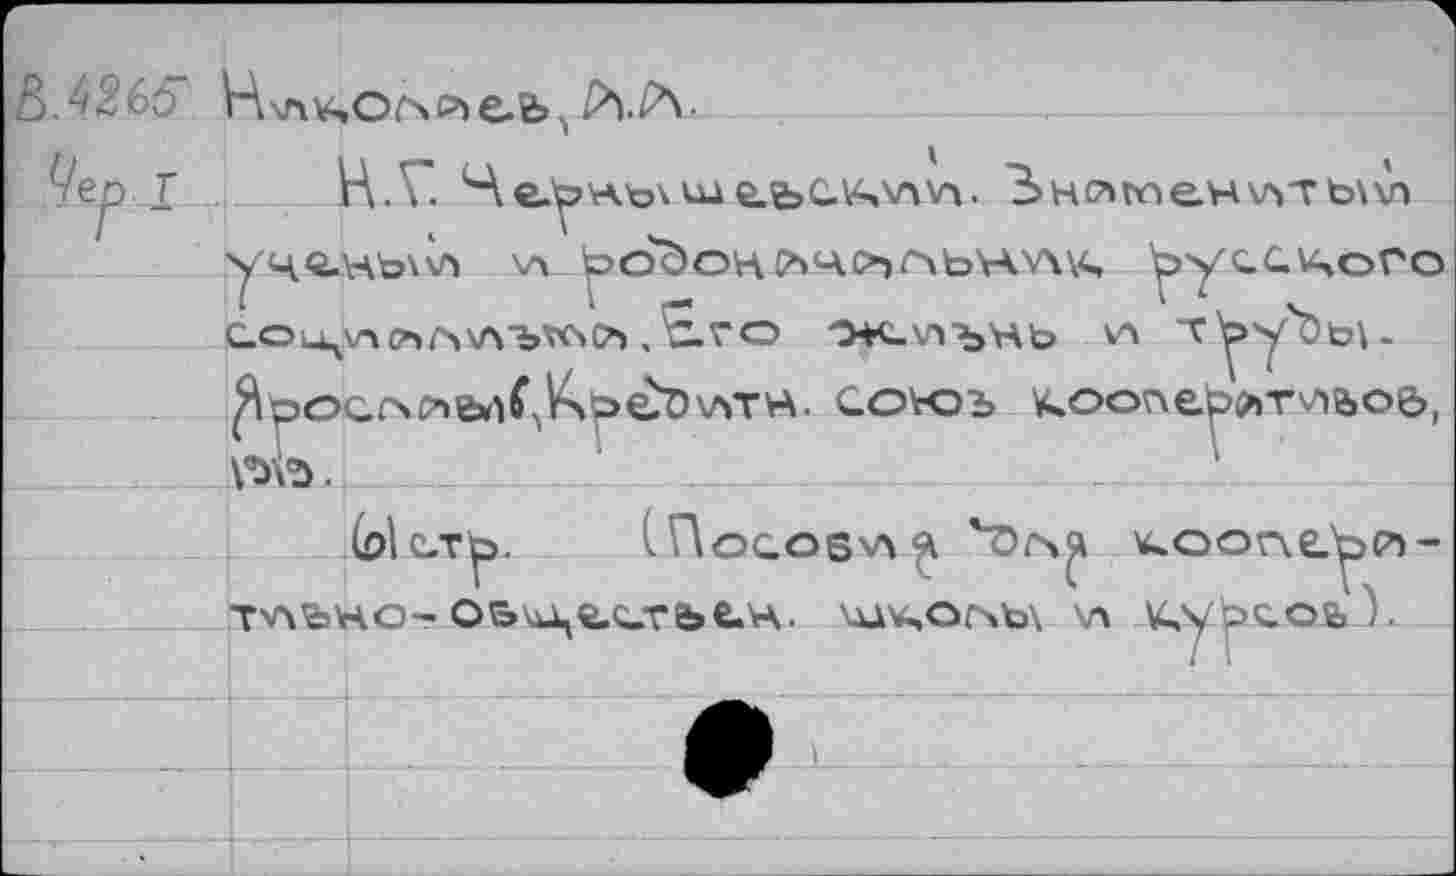 В.4265 Николаев, А.А.
Чер I Н.Г. Чернышевский. Знаменитый
ученый и родоначальник русского
социализма, Его жизнь и труды.
Ярославль, Кредитн. союз кооперативов,
1919.
61 стр. (Пособия для коопера-
тивно-обществен. школы и курсов).